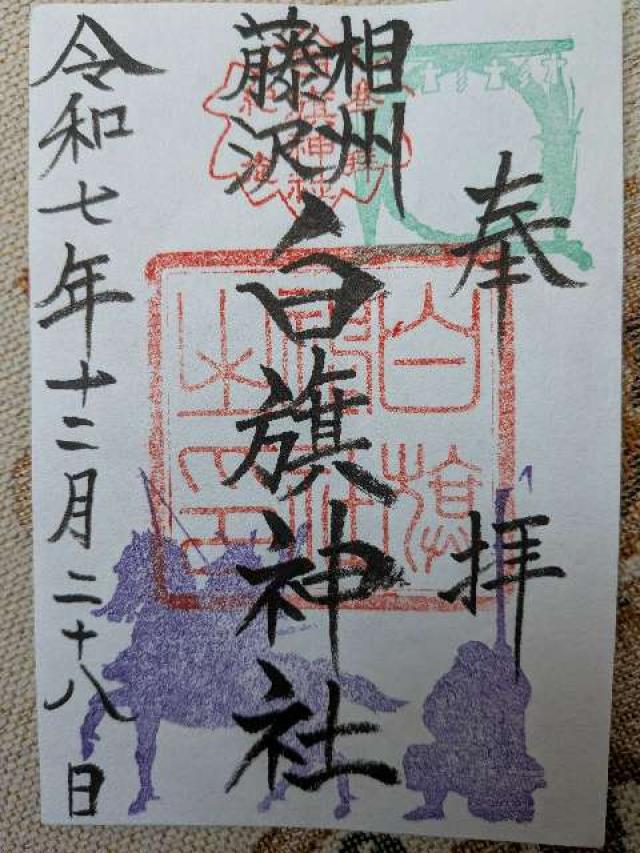 奉拝
相州
藤沢
白旗神社
令和七年十二月二十八日
白旗
神社
之印